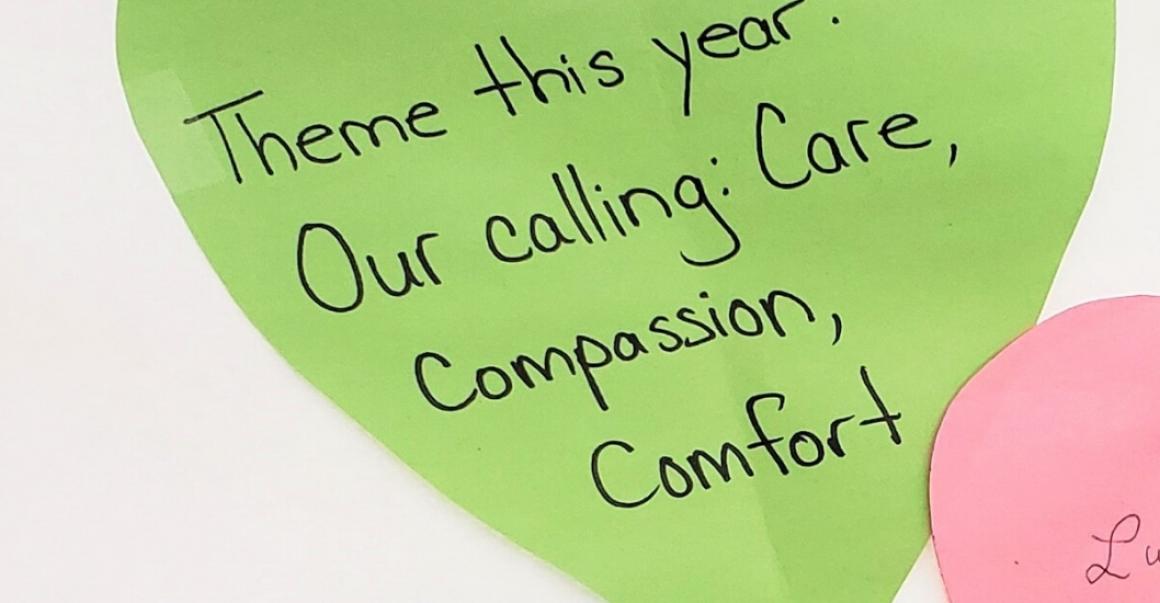 Theme this year:
Our calling: Care,
Compassion,
Comfort